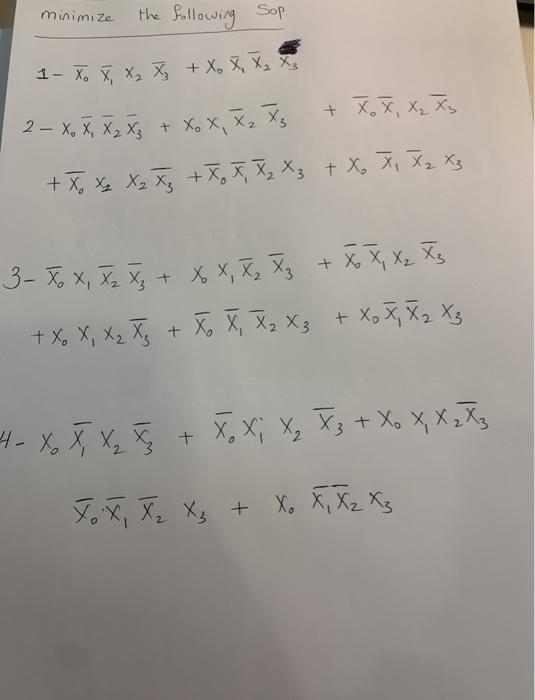 minimize the following Sop
1- X̅₀ X̅₁ X₂ X̅₃ + X₀ X̅₁ X̅₂ X₃
2- X₀ X̅₁ X̅₂ X̅₃ + X₀ X₁ X̅₂ X̅₃ + X̅₀ X̅₁ X₂ X̅₃
+ X̅₀ X₂ X₂ X̅₃ + X̅₀ X̅₁ X̅₂ X₃ + X₀ X̅₁ X̅₂ X₃
3- X̅₀ X₁ X̅₂ X̅₃ + X₀ X₁ X̅₂ X̅₃ + X̅₀ X̅₁ X₂ X̅₃
+ X₀ X₁ X₂ X̅₃ + X̅₀ X̅₁ X̅₂ X₃ + X₀ X̅₁ X̅₂ X₃
4- X₀ X̅₁ X₂ X̅₃ + X̅₀ X₁ X₂ X̅₃ + X₀ X₁ X₂ X̅₃
X̅₀ X̅₁ X̅₂ X₃ + X₀ X̅₁ X̅₂ X₃